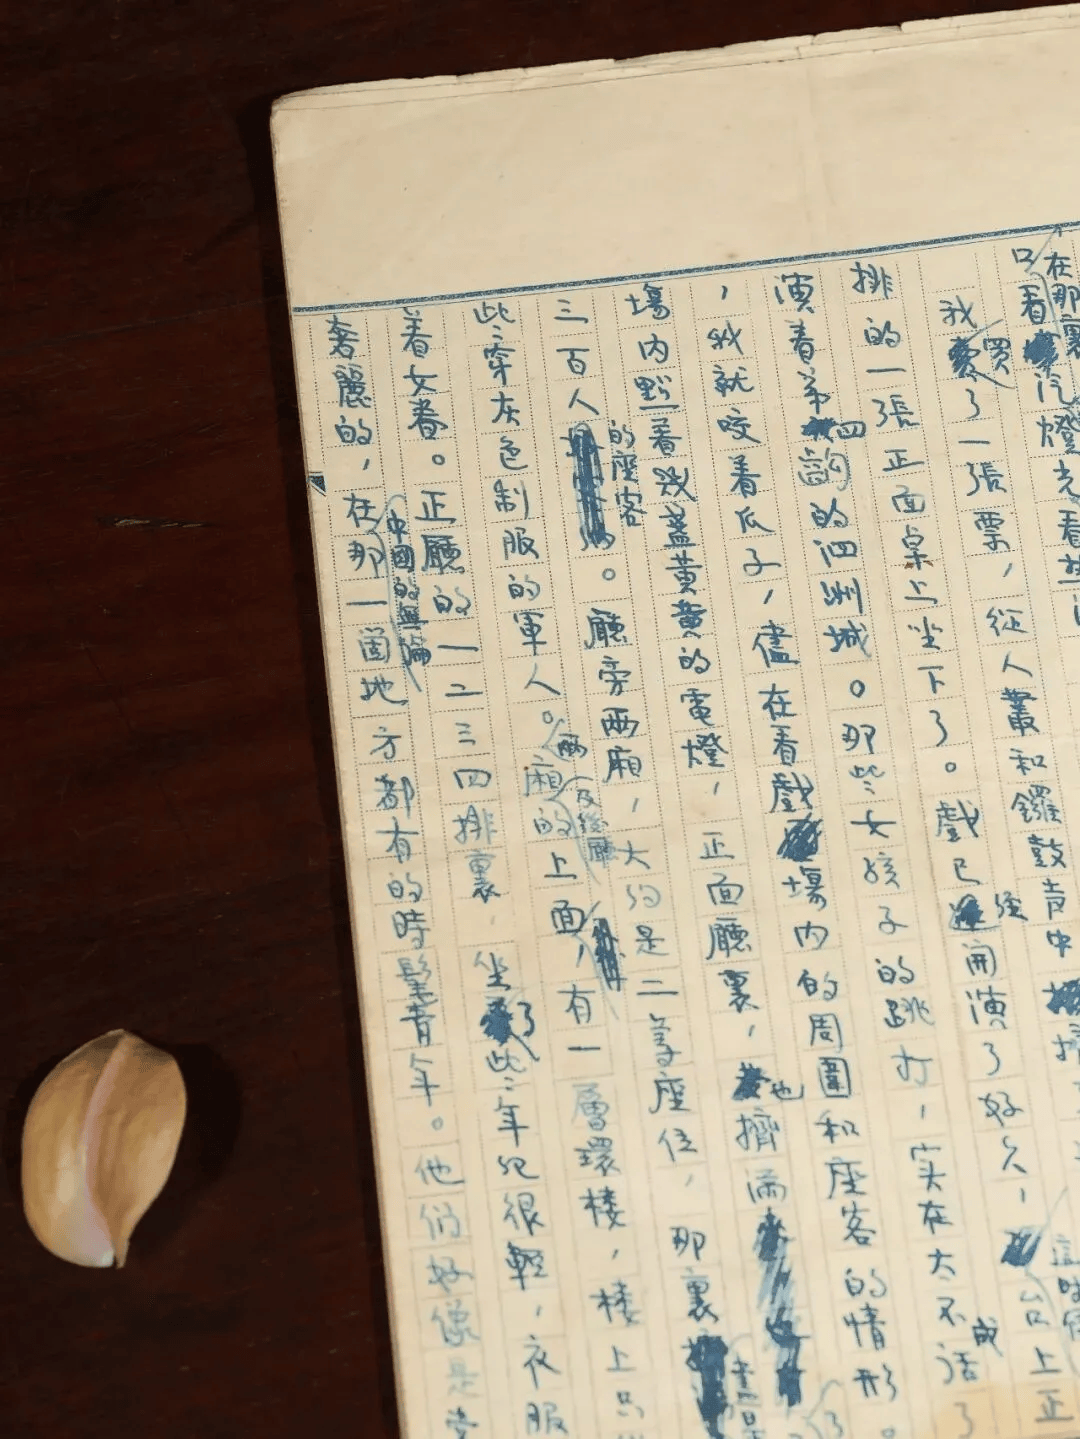 在那裏
只看汽燈光看
我買了一張票，從人叢和鑼鼓音中
排的一張正面桌上坐下了。戲已經開演了好久，台上正
演着第四齣的泗洲城。那些女孩子的跳打，实在太不成話了
，我就咬着瓜子，儘在看戲場内的周圍和座客的情形。
場内點着幾盞黃黃的電燈，正面廳裏，也擠滿了
三百人的座客。廳旁两廂，大約是二等座位，那裏
此三穿灰色制服的軍人。两廂及後廳的上面，有一層環楼，楼上只
着女眷。正廳的一二三四排裏，坐了些年紀很輕，衣服
奢麗的，在中國的無論那一個地方都有的時髦青年。他们好像是